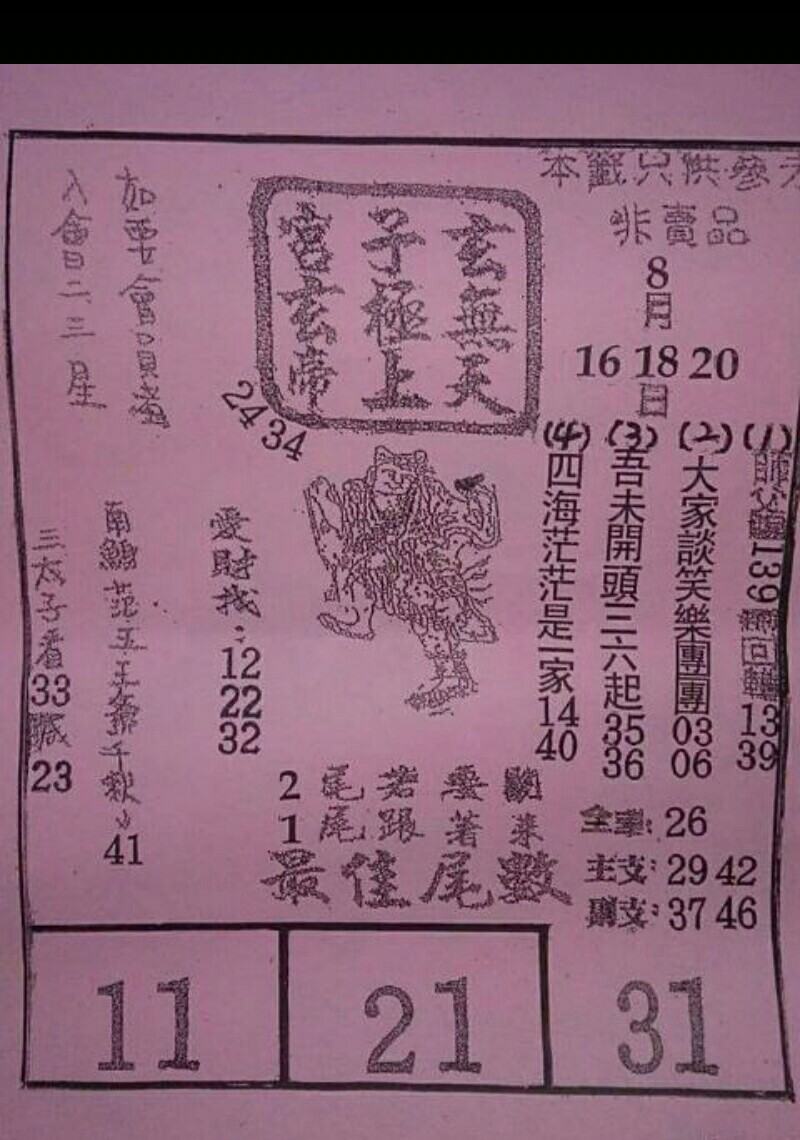 本籤只供參考
非賣品
8
月
16 18 20
日
玄無天
子極上
宮玄帝
24 34
(1)
139 回轉
13
39
(2)
大家談笑樂團團
03
06
(3)
吾未開頭三六起
35
36
(4)
四海茫茫是一家
14
40
26
主支: 29 42
副支: 37 46
愛財找:
12
22
32
如要會員
入會日二.三星
南鯤 范王 千秋
41
三太子看
33
23
2 尾 若 要
1 尾 跟 著 來
最佳尾數
11
21
31